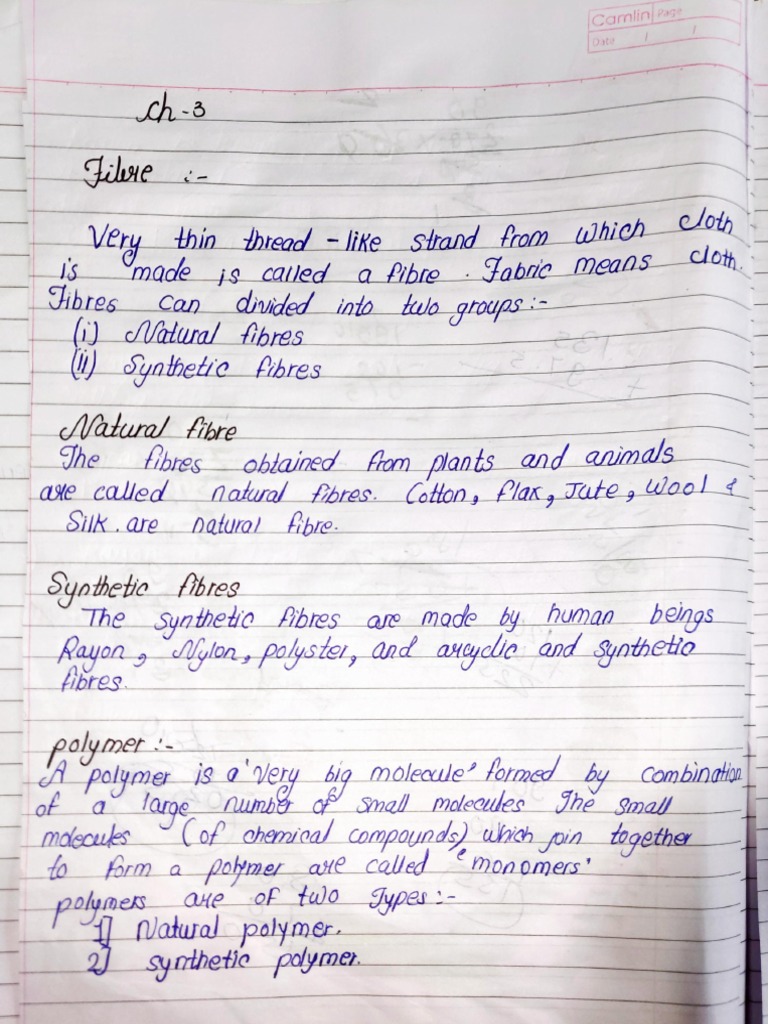 Camlin Page
Date / /
Ch-3
Fibre :-
Very thin thread-like strand from which cloth
is made is called a fibre. Fabric means cloth.
Fibres can divided into two groups:-
(i) Natural fibres
(ii) Synthetic fibres
Natural fibre
The fibres obtained from plants and animals
are called natural fibres. Cotton, flax, Jute, wool &
Silk. are natural fibre.
Synthetic fibres
The synthetic fibres are made by human beings
Rayon, Nylon, polyster, and arcyclic and synthetic
fibres.
polymer:-
A polymer is a 'very big molecule' formed by combination
of a large number of small molecules The small
molecules (of chemical compounds) which join together
to form a polymer are called 'monomers'
polymers are of two Types:-
1] Natural polymer.
2] synthetic polymer.